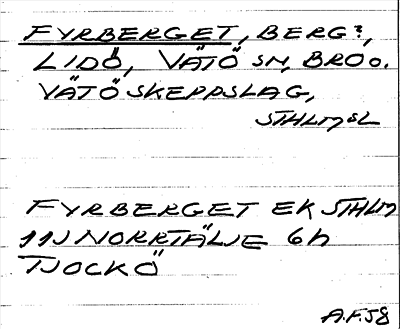 FYRBERGET, BERG?,
LIDÖ, VÄTÖ SN, BRO O.
VÄTÖ SKEPPSLAG,
STHLMSL
FYRBERGET EK STHLM
11J NORRTÄLJE 6h
TJOCKÖ
A.F.58